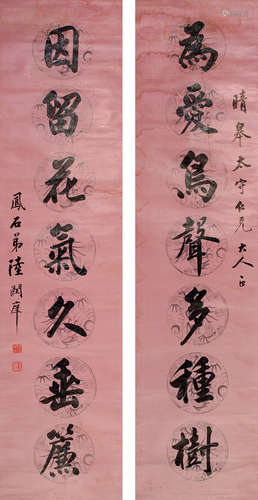 晴皋太守仁兄大人正
為愛鳥聲多種樹
因留花氣久垂簾
鳳石弟陸潤庠